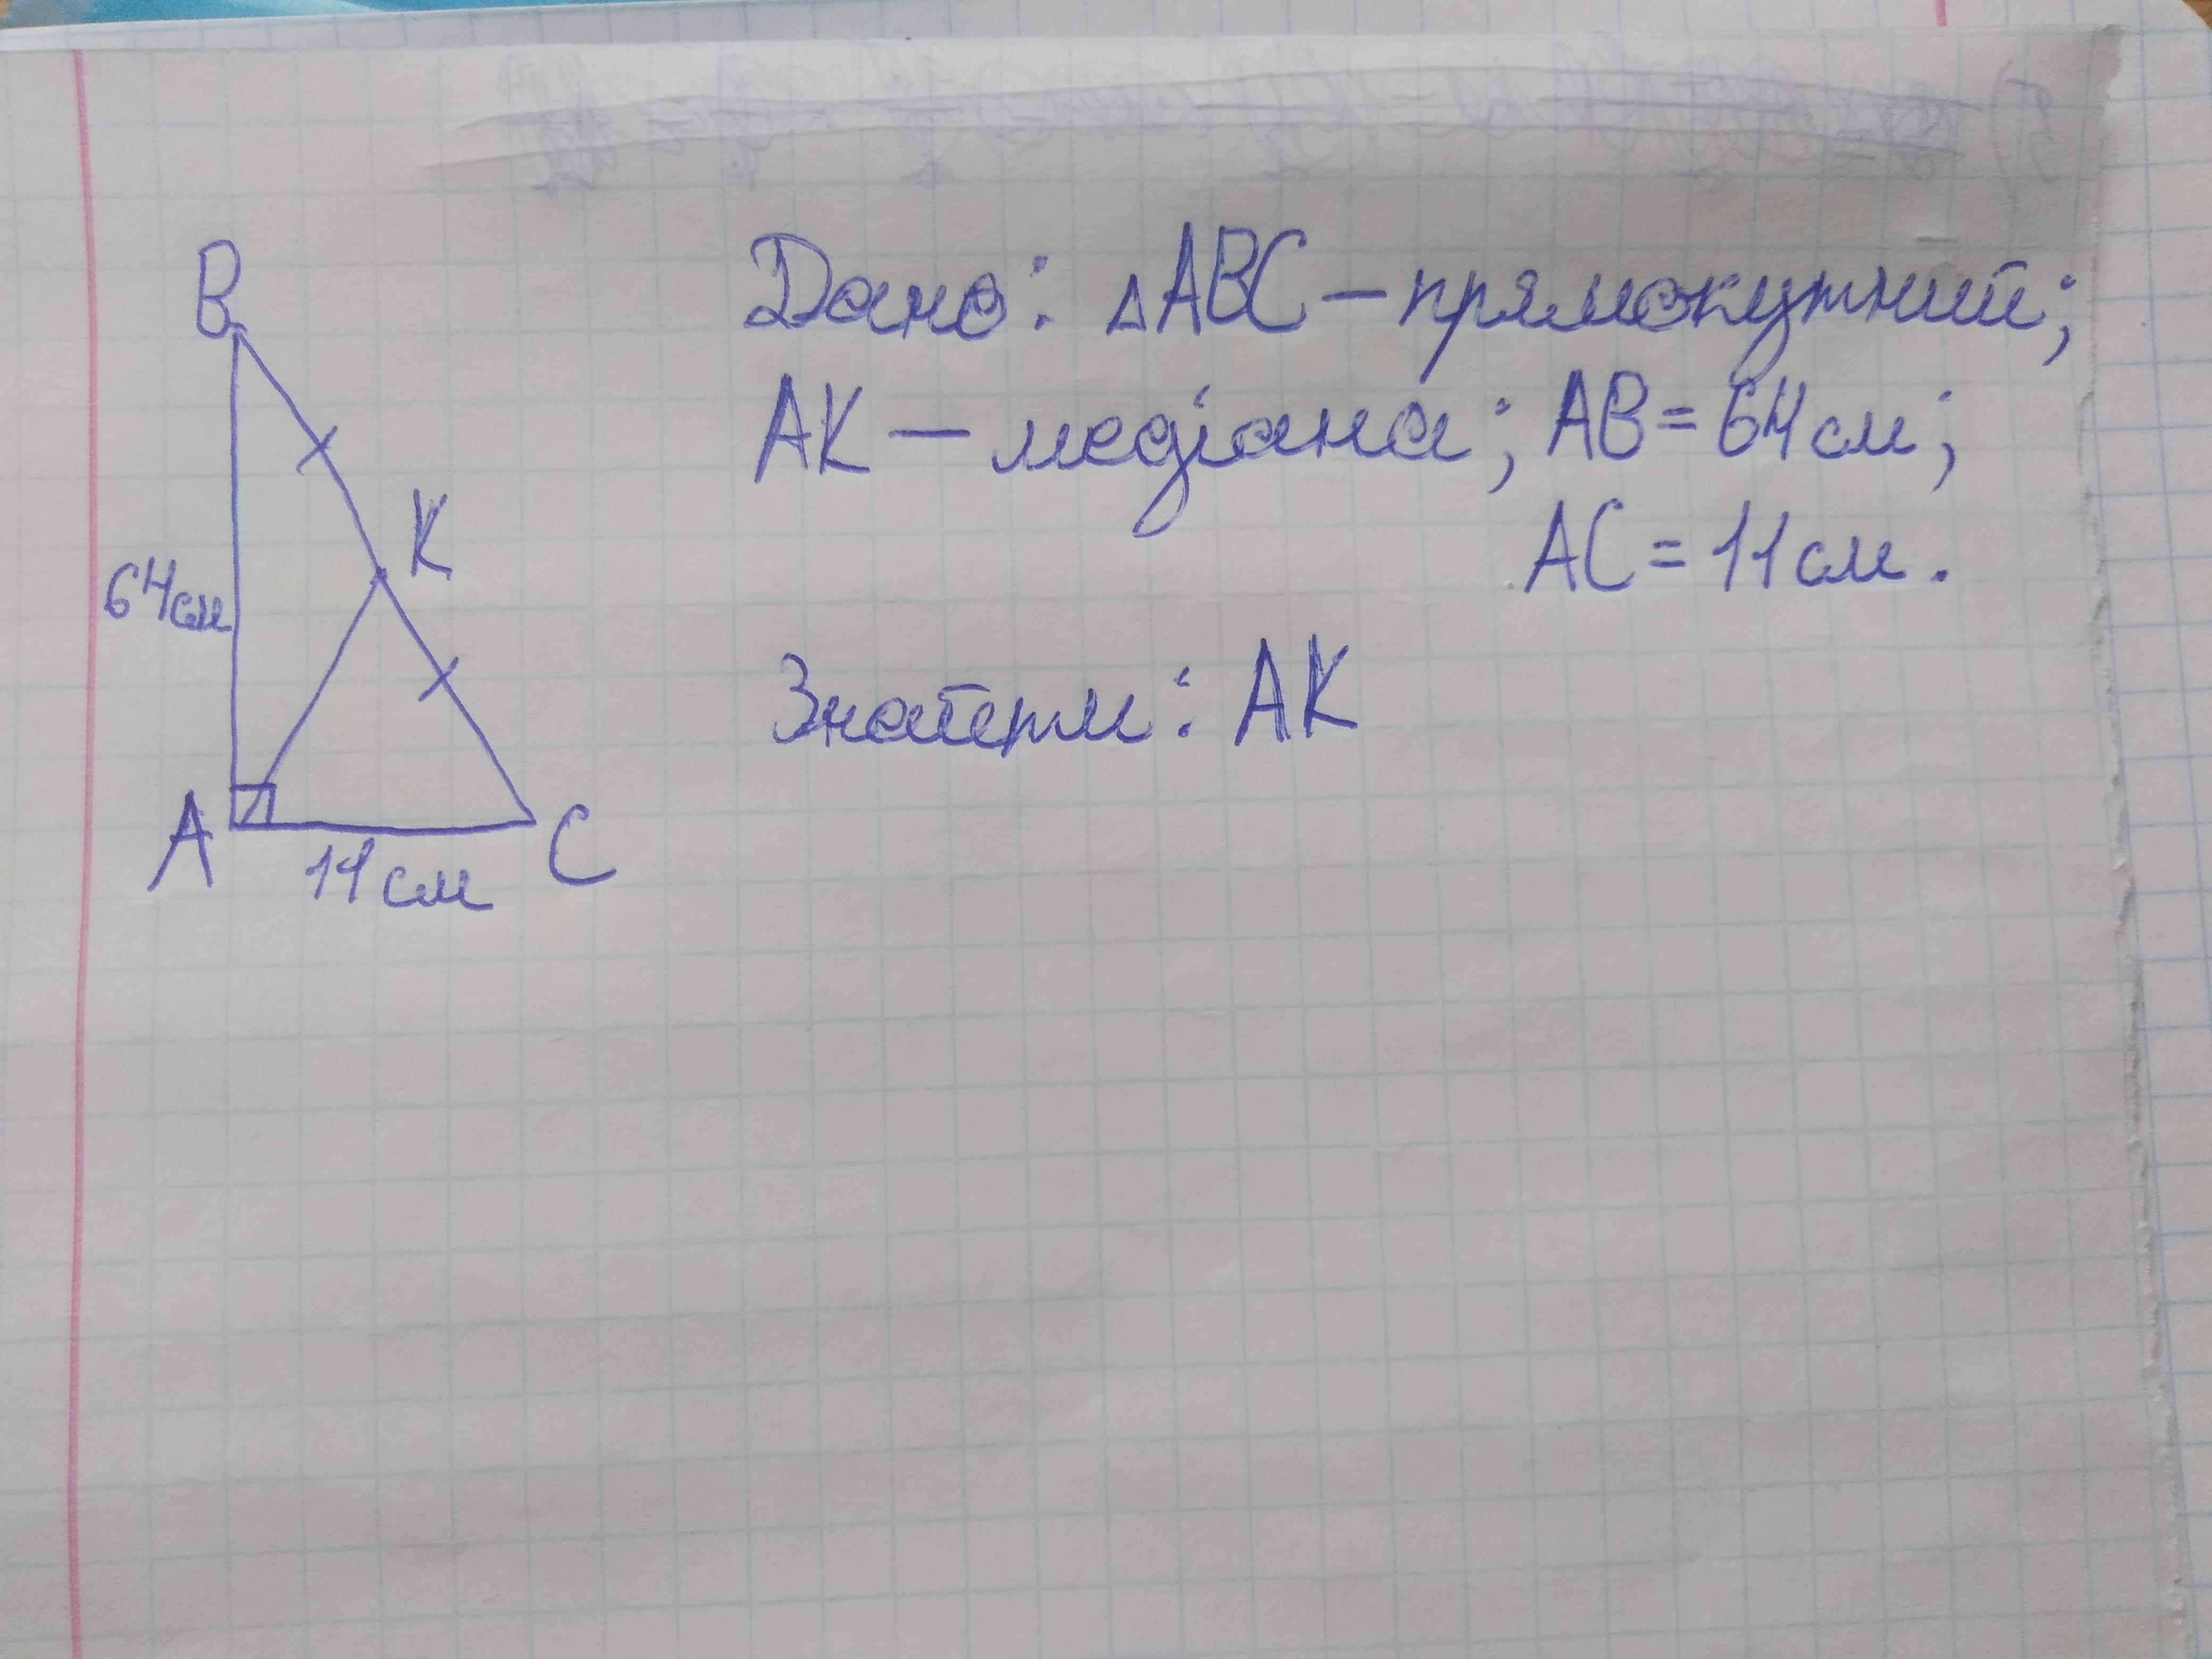 Дано: △ABC – прямокутний;
AK – медіана; AB = 64см;
AC = 11см.
Знайти: AK
B
K
64см
A
11см
C